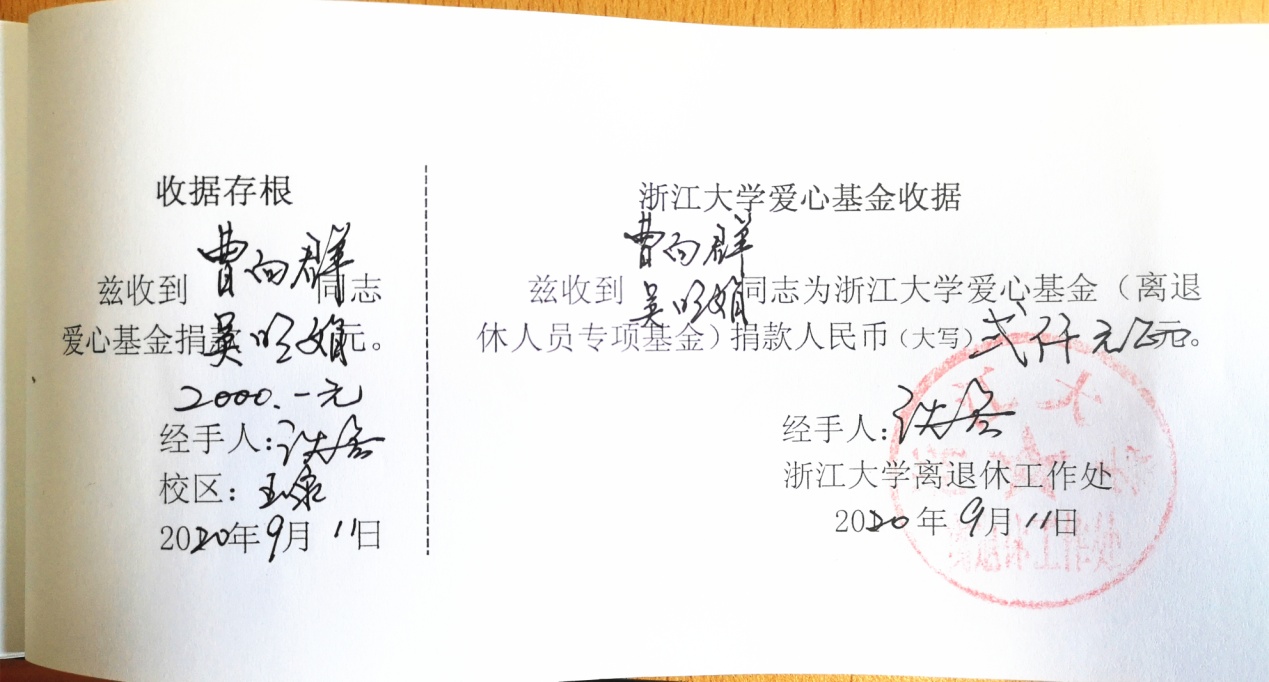 收据存根
曹向群
兹收到 同志
吴明娟
爱心基金捐 元。
2000.-元
经手人:
校区:玉泉
2020年9月11日
浙江大学爱心基金收据
曹向群
吴明娟
兹收到 同志为浙江大学爱心基金(离退
休人员专项基金)捐款人民币(大写)弍仟元正元。
经手人:
浙江大学离退休工作处
2020年9月11日